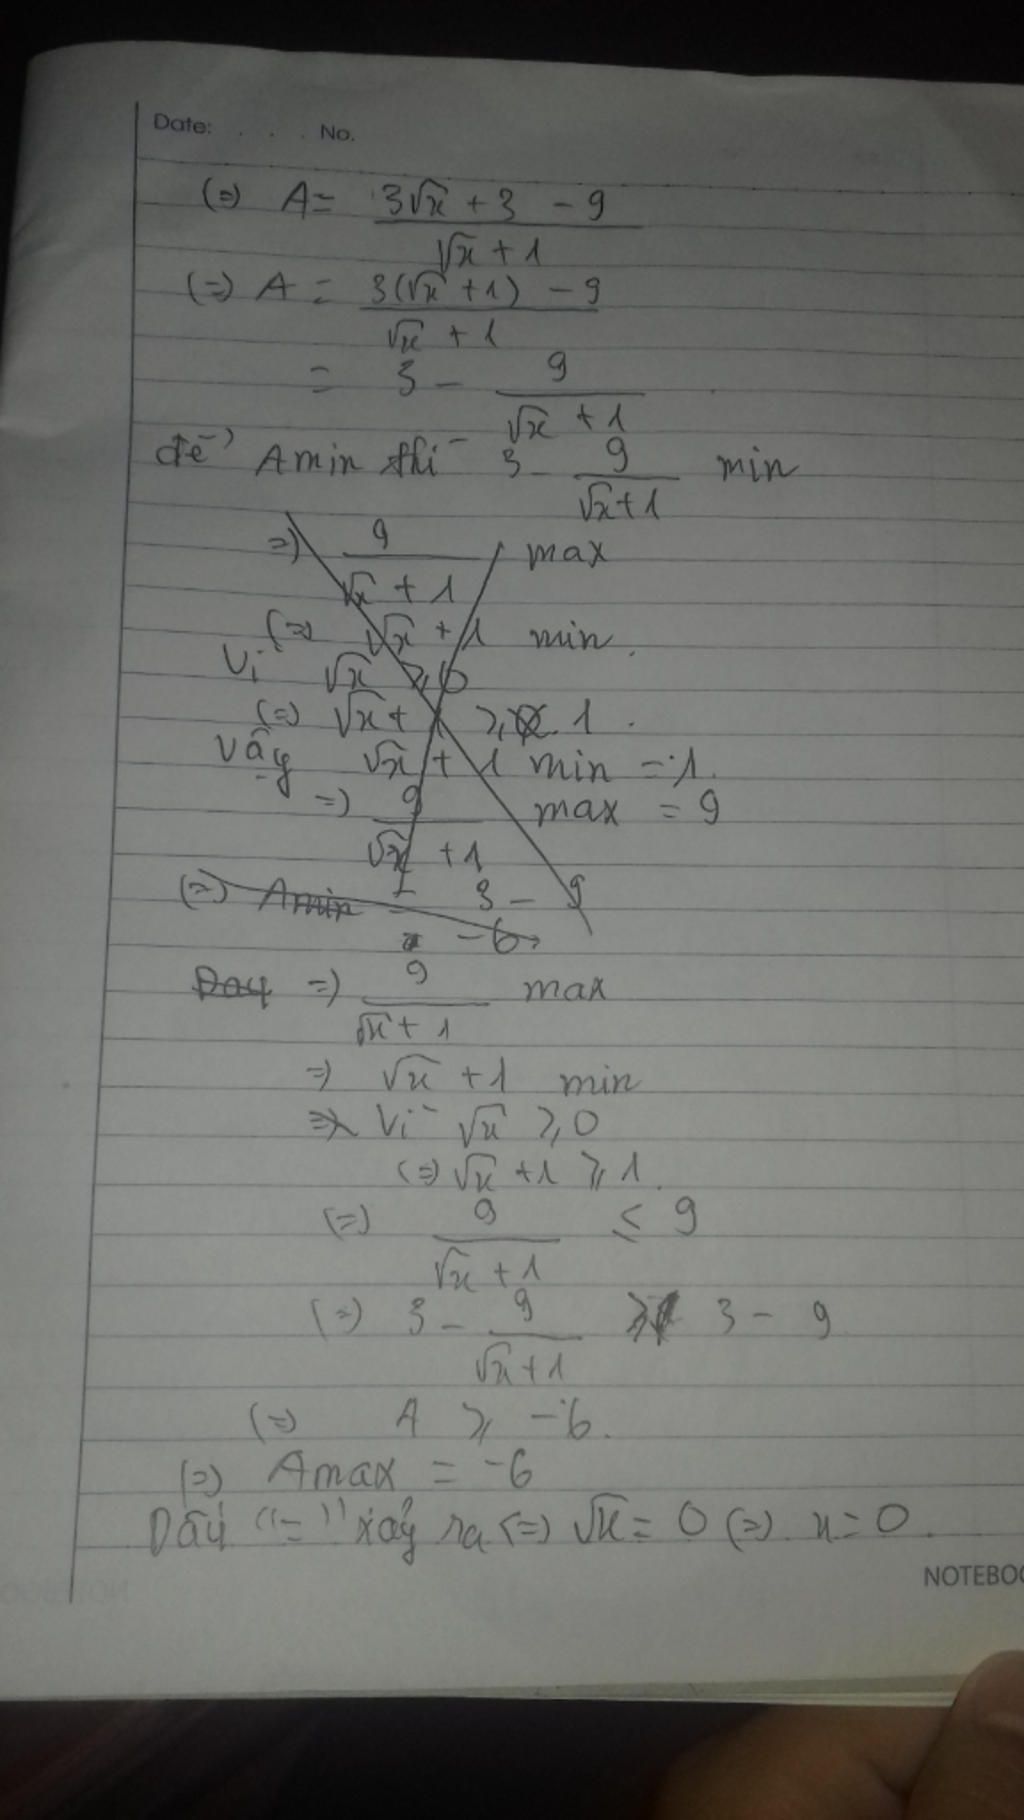 Date: . . . No.
(=) A = (3√x + 3 - 9)/(√x + 1)
(=) A = (3(√x + 1) - 9)/(√x + 1)
= 3 - 9/(√x + 1)
để A min thì 3 - 9/(√x+1) min
=) 9/(√x + 1) max
(=) √x + 1 min.
Vì √x ⩾ 0
(=) √x + 1 ⩾ 1.
Vậy √x + 1 min = 1.
=) 9/(√x + 1) max = 9
(=) Amin = 3 - 9
= -6
=) 9/(√x + 1) max
=) √x + 1 min
=) Vì √x ⩾ 0
(=) √x + 1 ⩾ 1.
(=) 9/(√x + 1) ≤ 9
(=) 3 - 9/(√x+1) ⩾ 3 - 9
(=) A ⩾ -6.
(=) Amax = -6
Dấu "=" xảy ra (=) √x = 0 (=) x = 0.